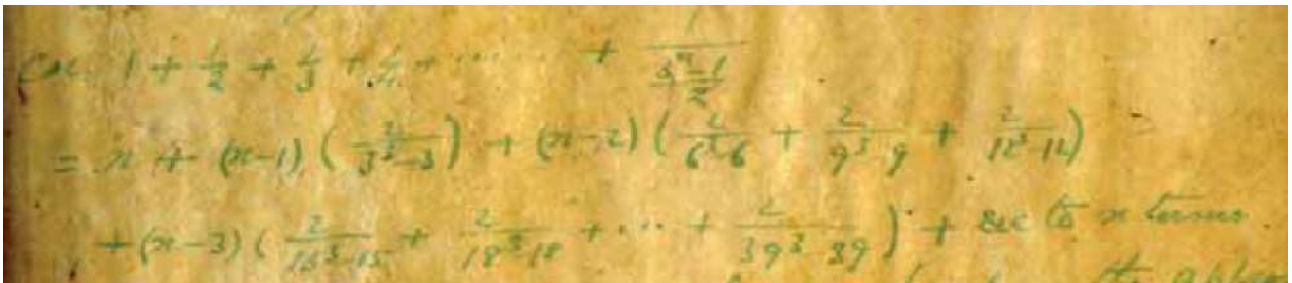 Ex. 1 + 1/2 + 1/3 + 1/4 + ······ + 1/((3^n - 1)/2)
= n + (n-1) (2/(3^3-3)) + (n-2) (2/(6^3-6) + 2/(9^3-9) + 2/(12^3-12))
+ (n-3) (2/(15^3-15) + 2/(18^3-18) + ··· + 2/(39^3-39)) + &c to n terms.